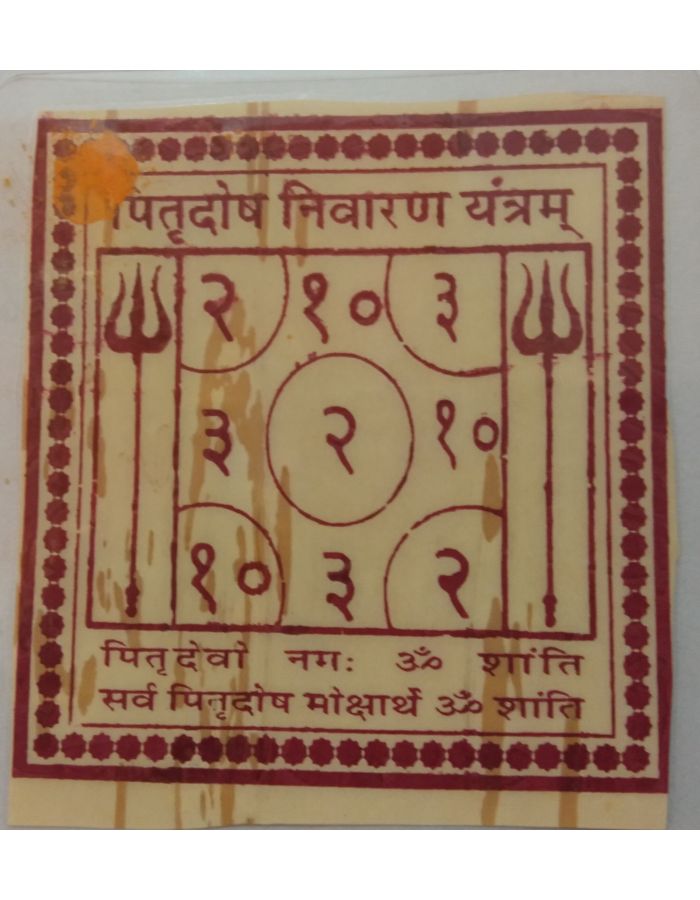 पितृदोष निवारण यंत्रम्
२ १० ३
३ २ १०
१० ३ २
पितृदेवो नमः ॐ शांति
सर्व पितृदोष मोक्षार्थे ॐ शांति